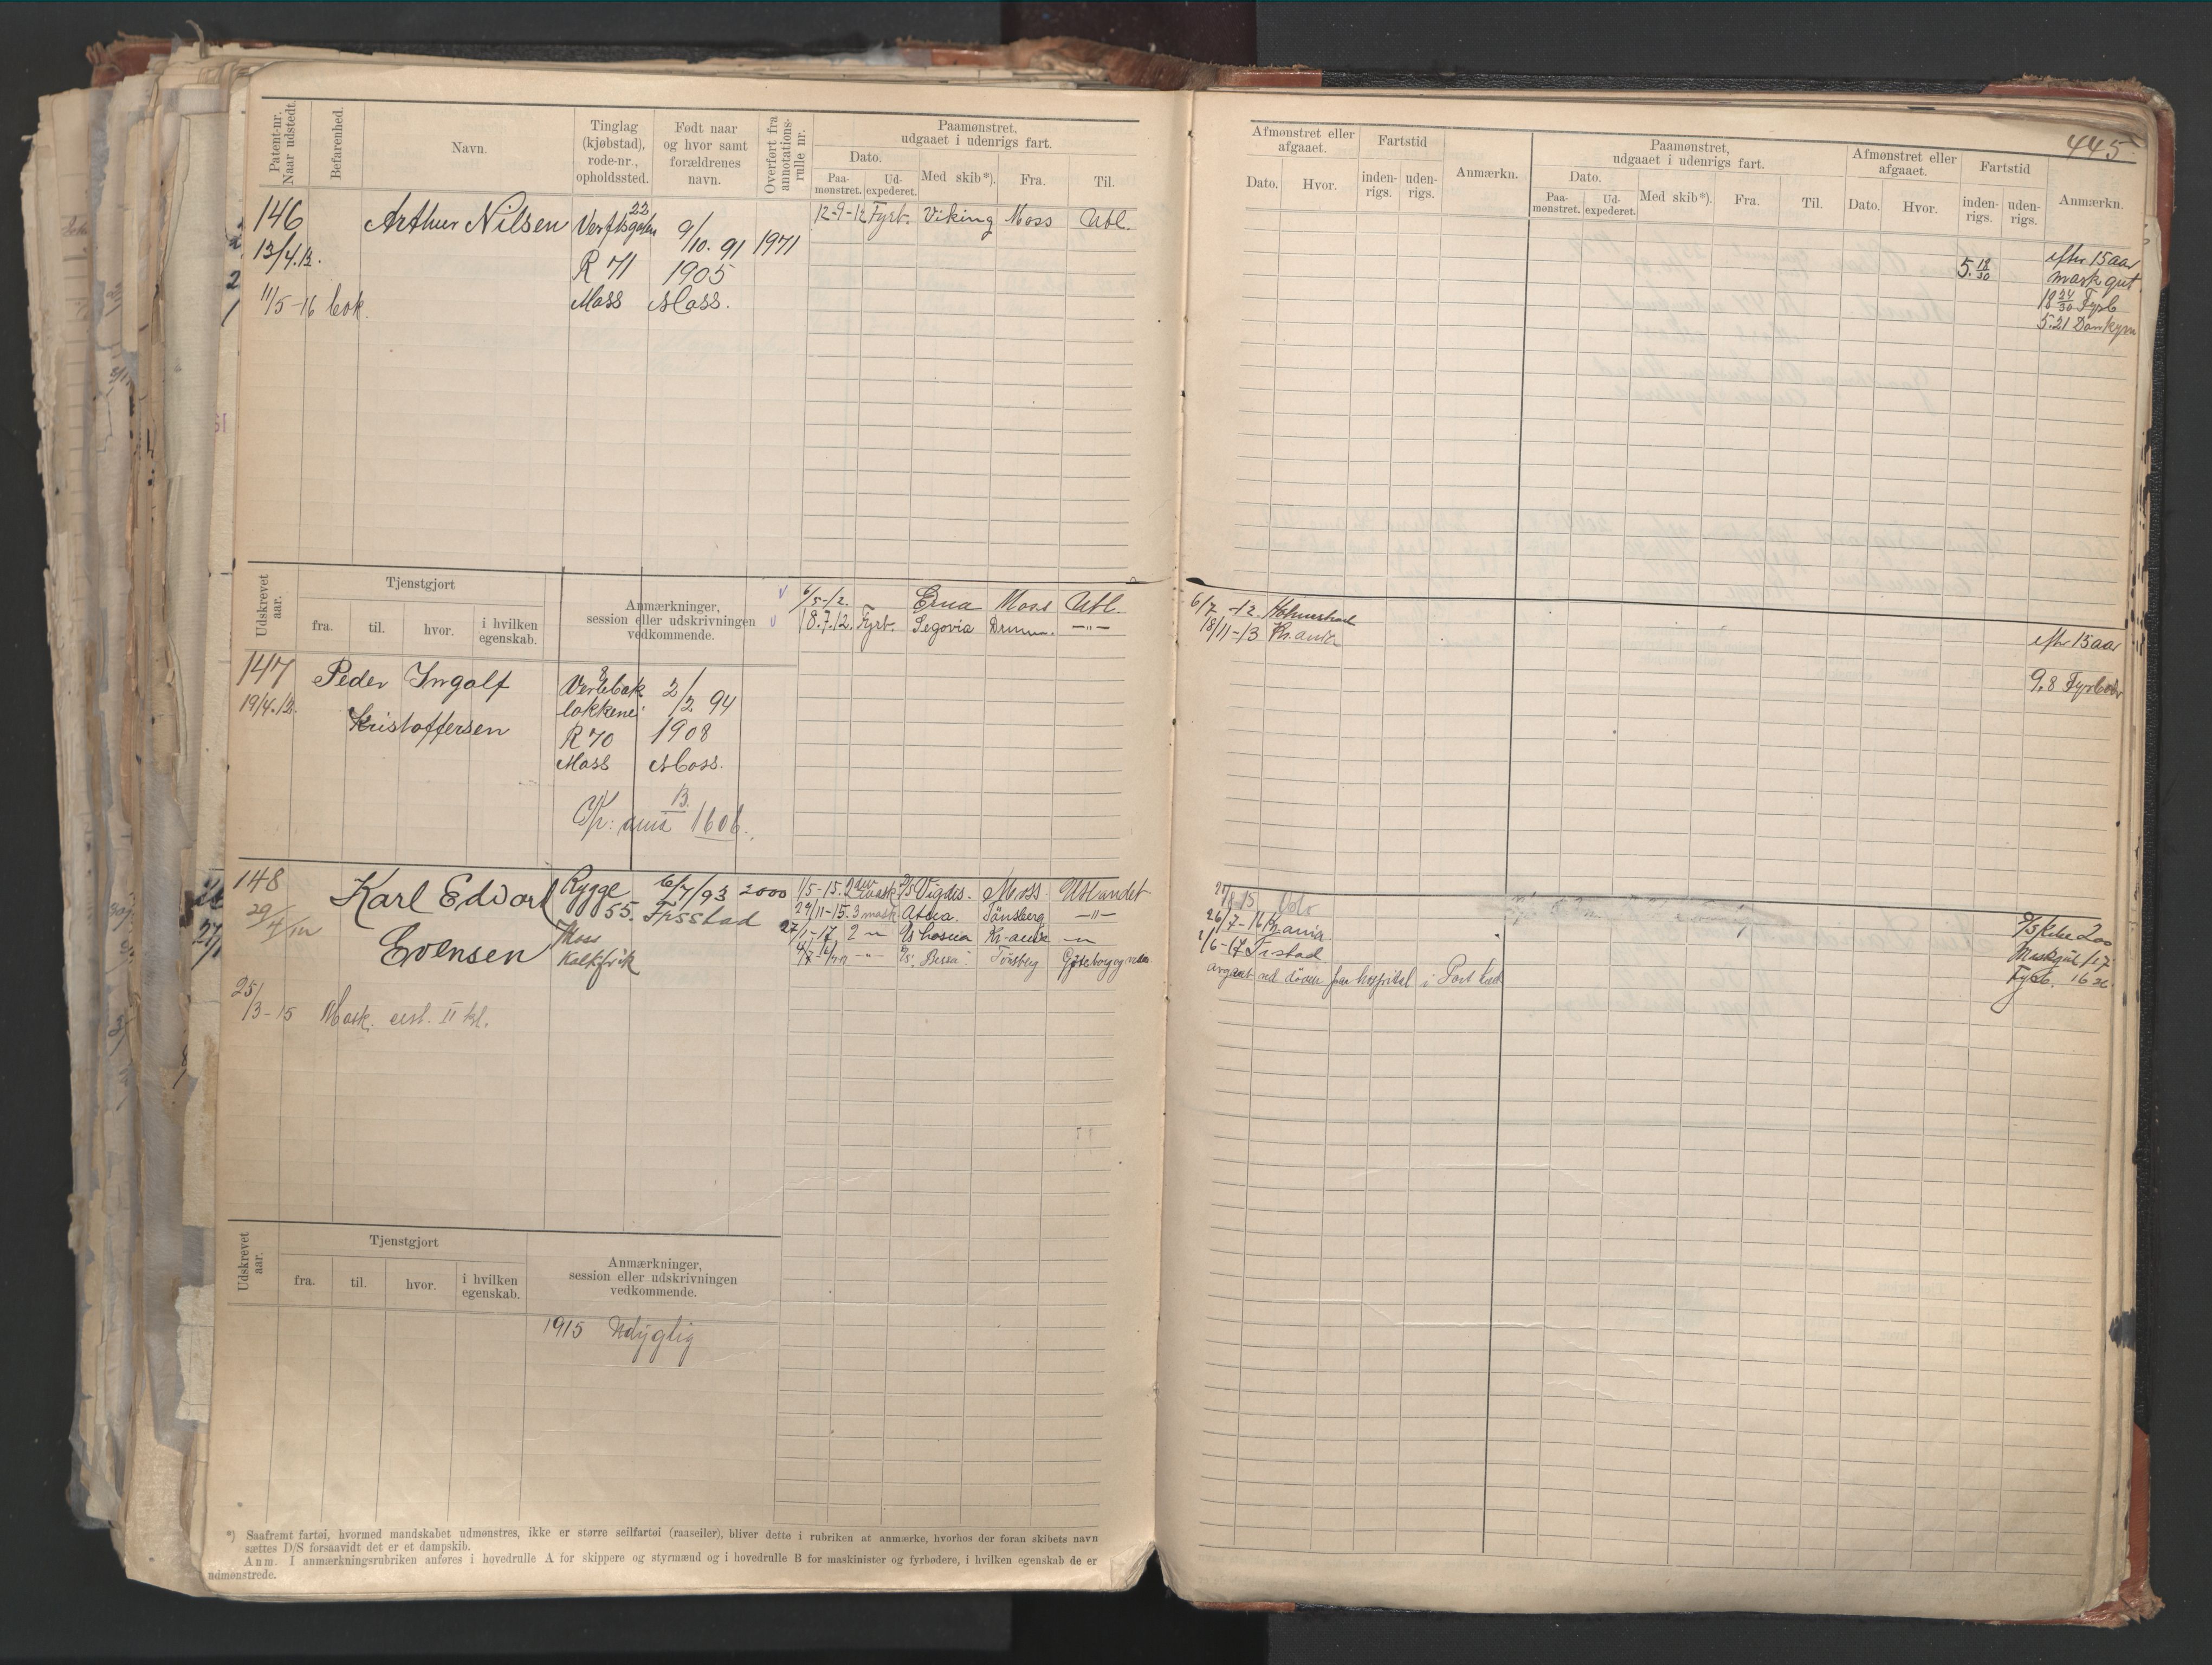 445.
Patent-nr. Naar udstedt.
Befarenhed.
Navn.
Tinglag (kjøbstad), rode-nr., opholdssted.
Født naar og hvor samt forældrenes navn.
Overført fra annotations-rulle nr.
Paamønstret, udgaaet i udenrigs fart.
Dato.
Paa-mønstret.
Ud-expederet.
Med skib*).
Fra.
Til.
Afmønstret eller afgaaet.
Dato.
Hvor.
Fartstid
inden-rigs.
uden-rigs.
Anmærkn.
Paamønstret, udgaaet i udenrigs fart.
Dato.
Paa-mønstret.
Ud-expederet.
Med skib*).
Fra.
Til.
Afmønstret eller afgaaet.
Dato.
Hvor.
Fartstid
inden-rigs.
uden-rigs.
Anmærkn.
146 Arthur Nilsen
13/4.12.
11/5-16 bok.
22
R 71
Moss
9/10. 91 1971
1905
Moss.
12-9-12 Fyrb. Viking Moss Utl.
5. 18/30
efter 15 aar
mask gut
18 24/30 Fyrb
5.21
Udskrevet aar.
Tjenstgjort
fra.
til.
hvor.
i hvilken egenskab.
Anmærkninger, session eller udskrivningen vedkommende.
6/5-12. Erna Moss Utl.
18.7.12. Fyrb. Segovia —"—
6/7 -12. Holmestrand
18/11-13 Kr.ania
efter 15 aar
9.8
147 Peder Ingolf
Kristoffersen
19/4.12.
R 70
Moss
2/2. 94
1908
Moss.
13.
1606.
148 Karl Edvart
Evensen
29/4/12
Rygge
55.
Moss
6/7/93 2000
Frsstad
1/5-15. 2den mask D/S Vigdis. Moss Utlandet
24/11-15. 3 mask Atna. Tönsberg —"—
27/1-17 2 —"— Kr-ania —"—
Tönsberg
28/8 15 Oslo
26/7-16 Kr.ania
1/6-17 Fr.stad
i Port
Maskgut 1.17
Fyrb.
25/3-15 Mask. cert. II kl.
Udskrevet aar.
Tjenstgjort
fra.
til.
hvor.
i hvilken egenskab.
Anmærkninger, session eller udskrivningen vedkommende.
1915 Udyglig
*) Saafremt fartøi, hvormed mandskabet udmønstres, ikke er større seilfartøi (raaseiler), bliver dette i rubriken at anmærke, hvorhos der foran skibets navn
sættes D/S forsaavidt det er et dampskib.
Anm. I anmærkningsrubriken anføres i hovedrulle A for skippere og styrmænd og i hovedrulle B for maskinister og fyrbødere, i hvilken egenskab de er
udmønstrede.